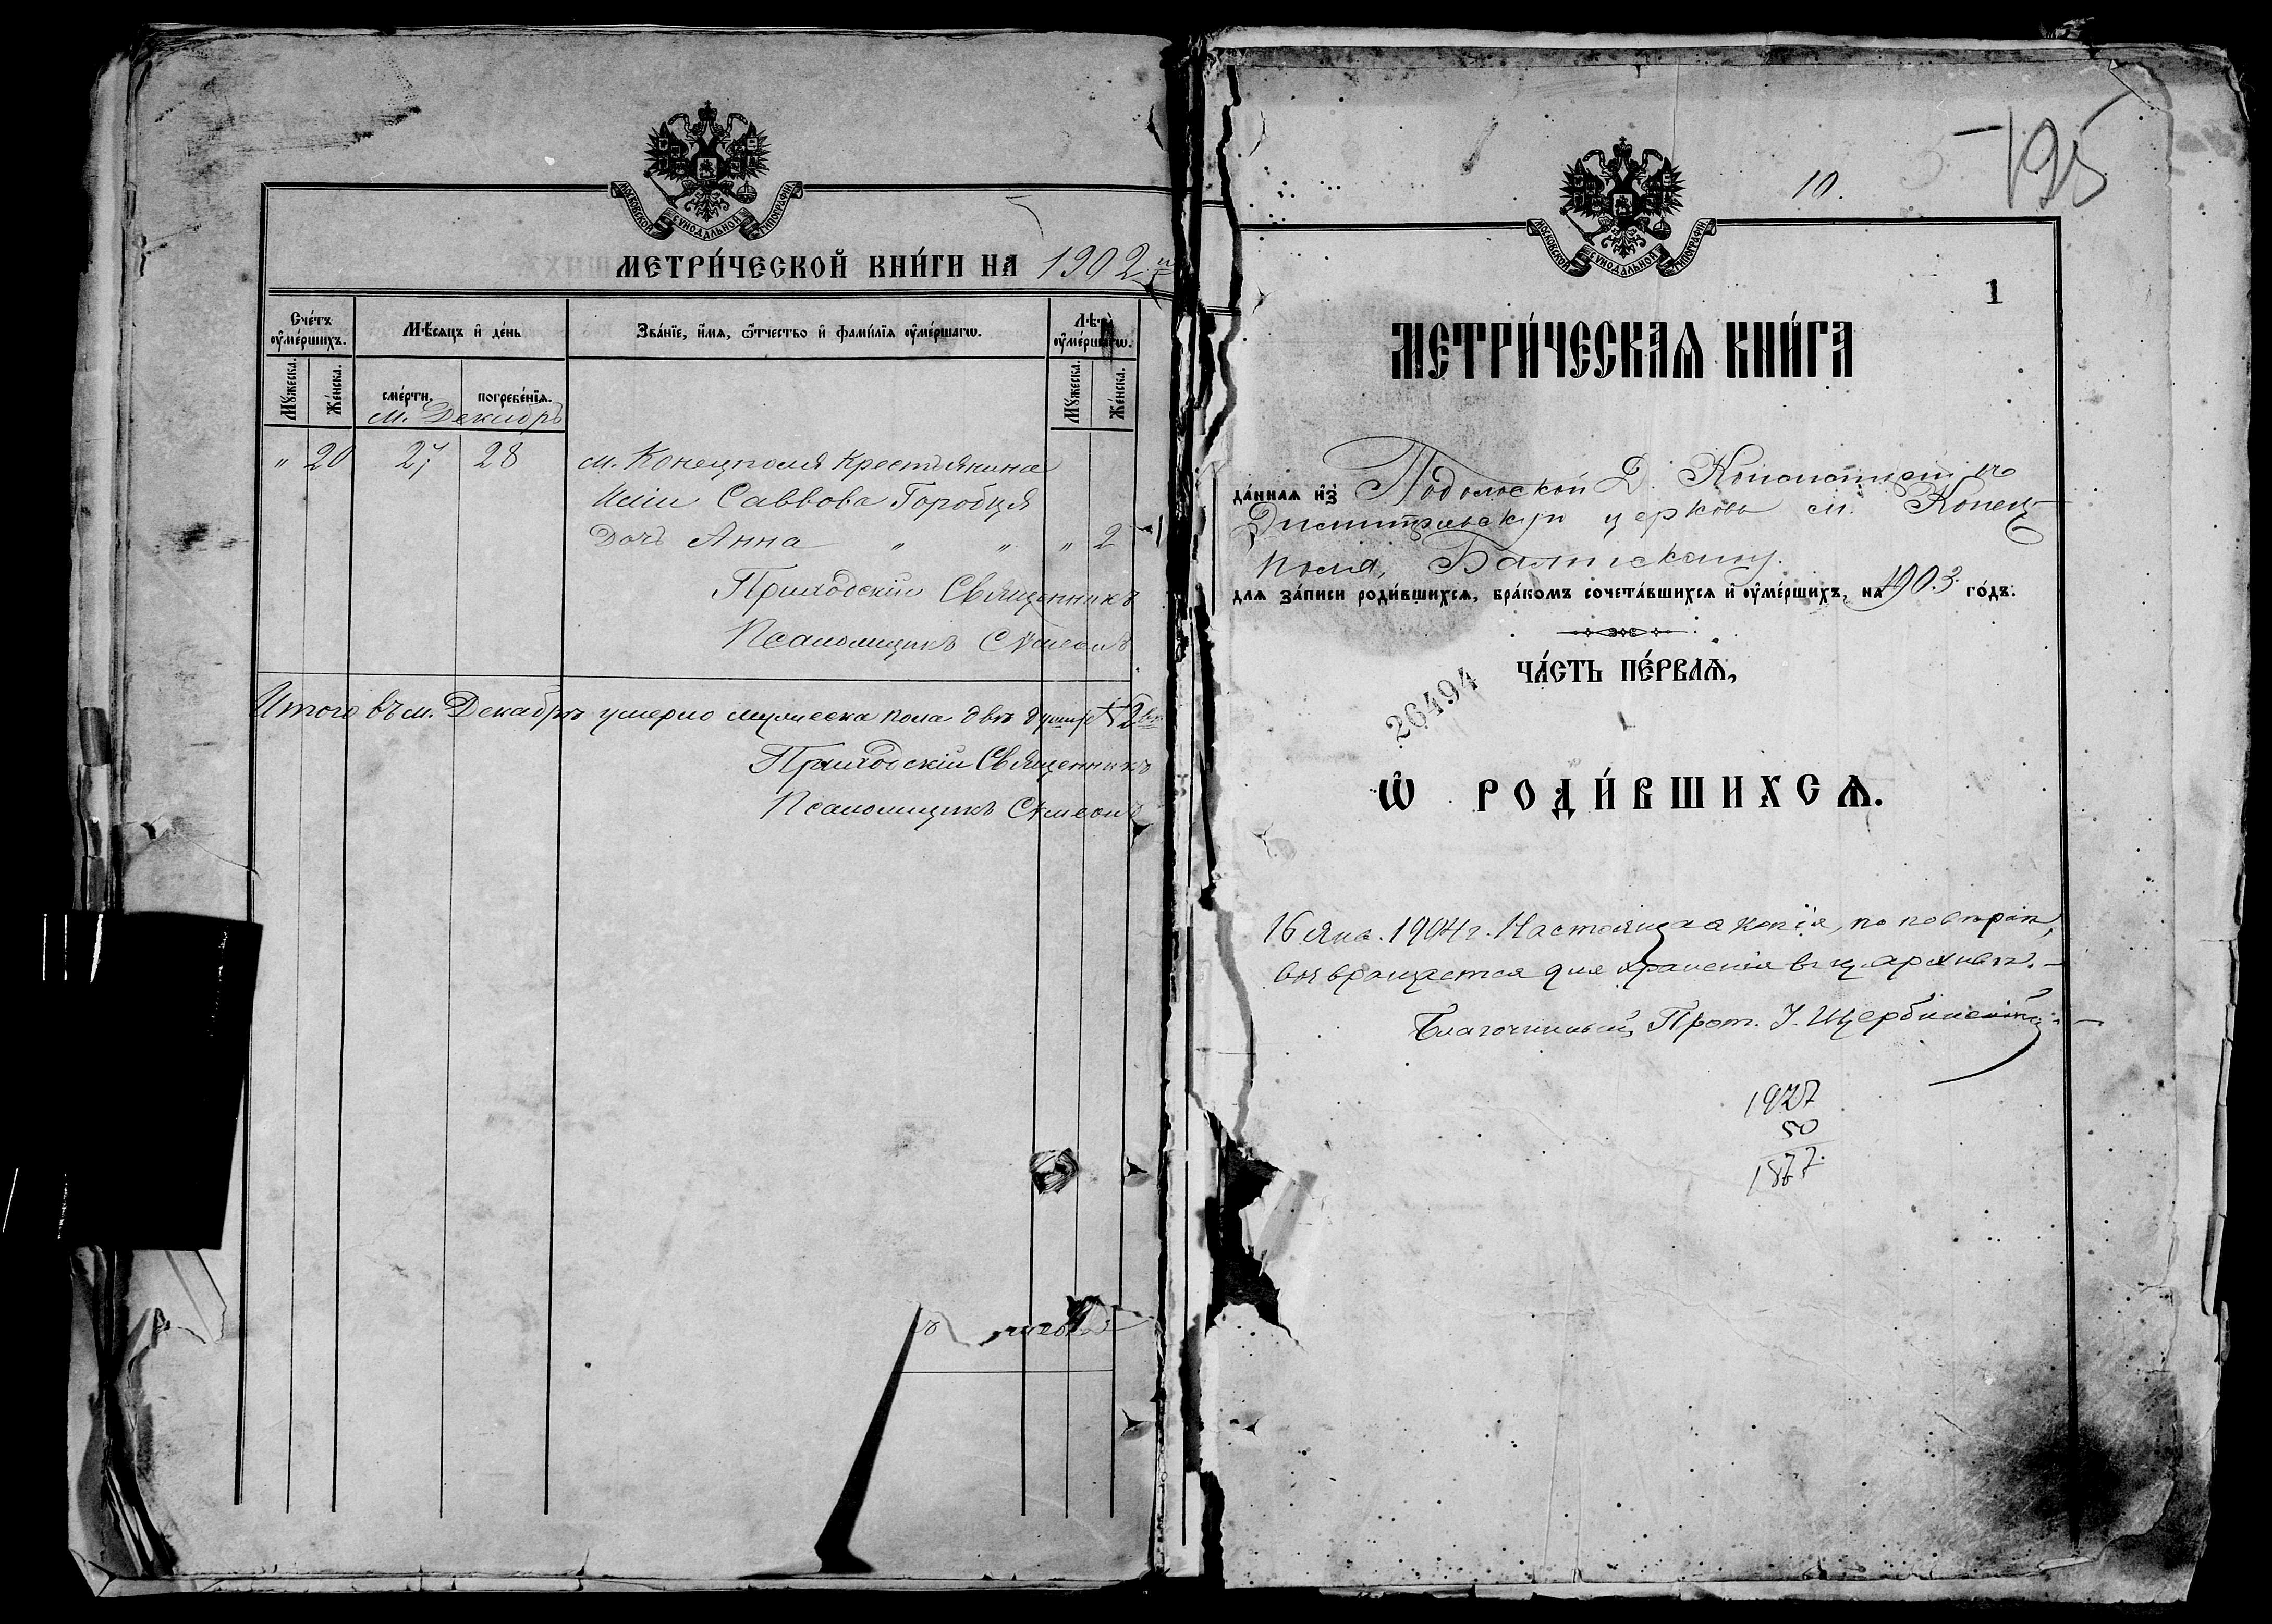 МОСКОВСКОЙ СѴНОДАЛЬНОЙ ТИПОГРАФІИ
МЕТРИ́ЧЕСКОЙ КНИ́ГИ НА 1902
Сче́тъ ᲂу҆ме́ршихъ.
Мѣ́сяцъ и҆ де́нь
Зва́нїе, и҆́мѧ, ѻ҆́тчество и҆ фами́лїѧ ᲂу҆ме́ршагѡ.
Лѣ́та ᲂу҆ме́ршагѡ.
Мꙋ́жеска.
Же́нска.
сме́рти,
погребе́нїѧ.
Мꙋ́жеска.
Же́нска.
м. Декабрь
" 20 27 28 м. Конецполя крестьянина
Саввова Горобця
Дочь Анна " " " 2
Приходскій Священникъ
Псаломщикъ Сѵмеонъ
Итого въ м. Декабрѣ умерло мужеска пола двѣ души
Приходскій Священникъ
Псаломщикъ Сѵмеонъ
195
10.
МОСКОВСКОЙ СѴНОДАЛЬНОЙ ТИПОГРАФІИ
1
МЕТРИ́ЧЕСКАѦ КНИ́ГА
да́ннаѧ и҆з̾ Подольской Д. Консисторіи въ
Димитріевскую церковь м. Конец-
поля, Балтскаго
длѧ за́писи роди́вшихсѧ, бра́комъ сочета́вшихсѧ и҆ ᲂу҆ме́ршихъ, на 1903 го́дъ.
ЧА́СТЬ ПЕ́РВАѦ,
26494
Ѡ҆ РОДИ́ВШИХСѦ.
16 Янв. 1904 г. Настоящая копія, по повѣркѣ,
возвращается для храненія въ ц. архивѣ. –
Благочинный, Прот. І. Щербинскій
1927
50
1877.